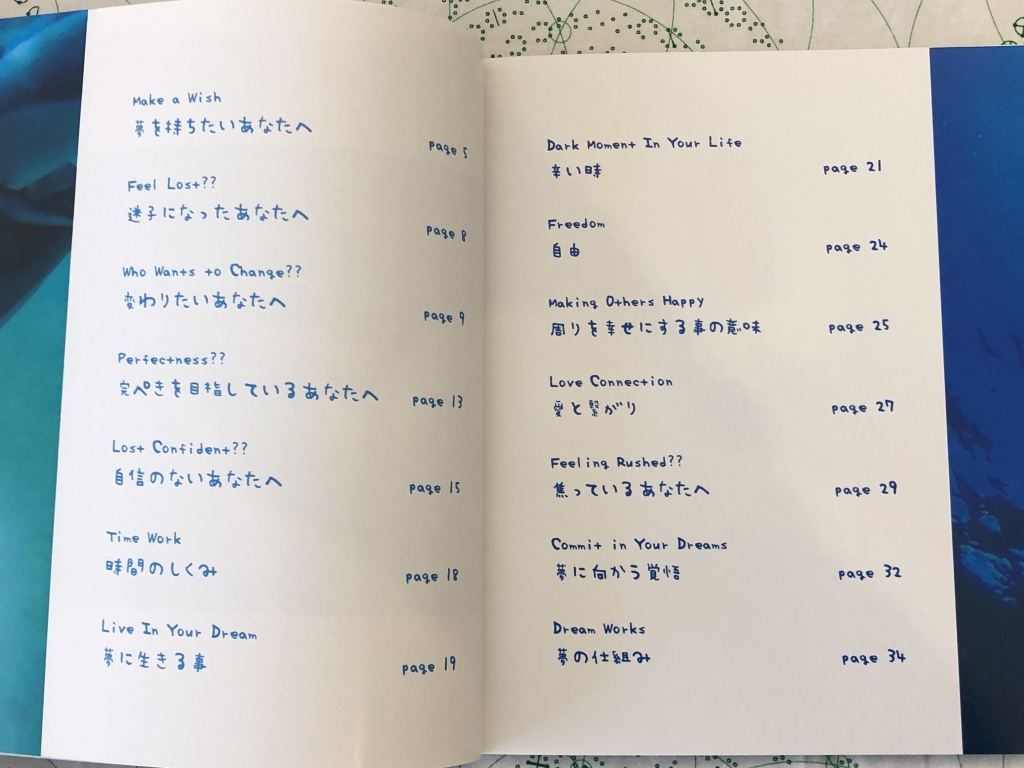 Make a Wish
夢を持ちたいあなたへ
page 5
Feel Lost??
迷子になったあなたへ
page 8
Who Wants to Change??
変わりたいあなたへ
page 9
Perfectness??
完ぺきを目指しているあなたへ page 13
Lost Confident??
自信のないあなたへ page 15
Time Work
時間のしくみ page 18
Live In Your Dream
夢に生きる事 page 19
Dark Moment In Your Life
辛い時 page 21
Freedom
自由 page 24
Making Others Happy
周りを幸せにする事の意味 page 25
Love Connection
愛と繋がり page 27
Feeling Rushed??
焦っているあなたへ page 29
Commit in Your Dreams
夢に向かう覚悟 page 32
Dream Works
夢の仕組み page 34